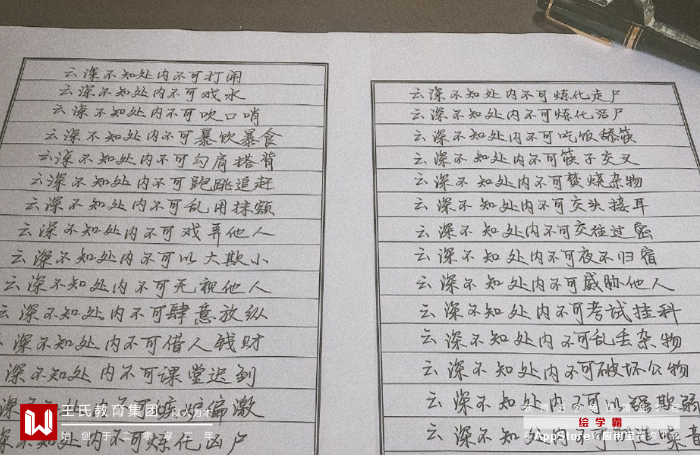 云深不知处内不可打闹
云深不知处内不可戏水
云深不知处内不可吹口哨
云深不知处内不可暴饮暴食
云深不知处内不可勾肩搭背
云深不知处内不可跑跳追赶
云深不知处内不可乱用抹额
云深不知处内不可戏弄他人
云深不知处内不可以大欺小
云深不知处内不可无视他人
云深不知处内不可肆意放纵
云深不知处内不可借人钱财
云深不知处内不可课堂迟到
深不知处内不可嫉妒偏激
深不知处内不可炼化凶尸
云深不知处内不可炼化走尸
云深不知处内不可炼化活尸
云深不知处内不可吃饭舔筷
云深不知处内不可筷子交叉
云深不知处内不可焚烧杂物
云深不知处内不可交头接耳
云深不知处内不可交往过密
云深不知处内不可夜不归宿
云深不知处内不可威胁他人
云深不知处内不可考试挂科
云深不知处内不可乱丢杂物
云深不知处内不可破坏公物
云深不知处内不可以强欺弱
云深不知处内不可制造噪音
王氏教育集团
始创于二零零一年
绘学霸
AppStore 应用宝